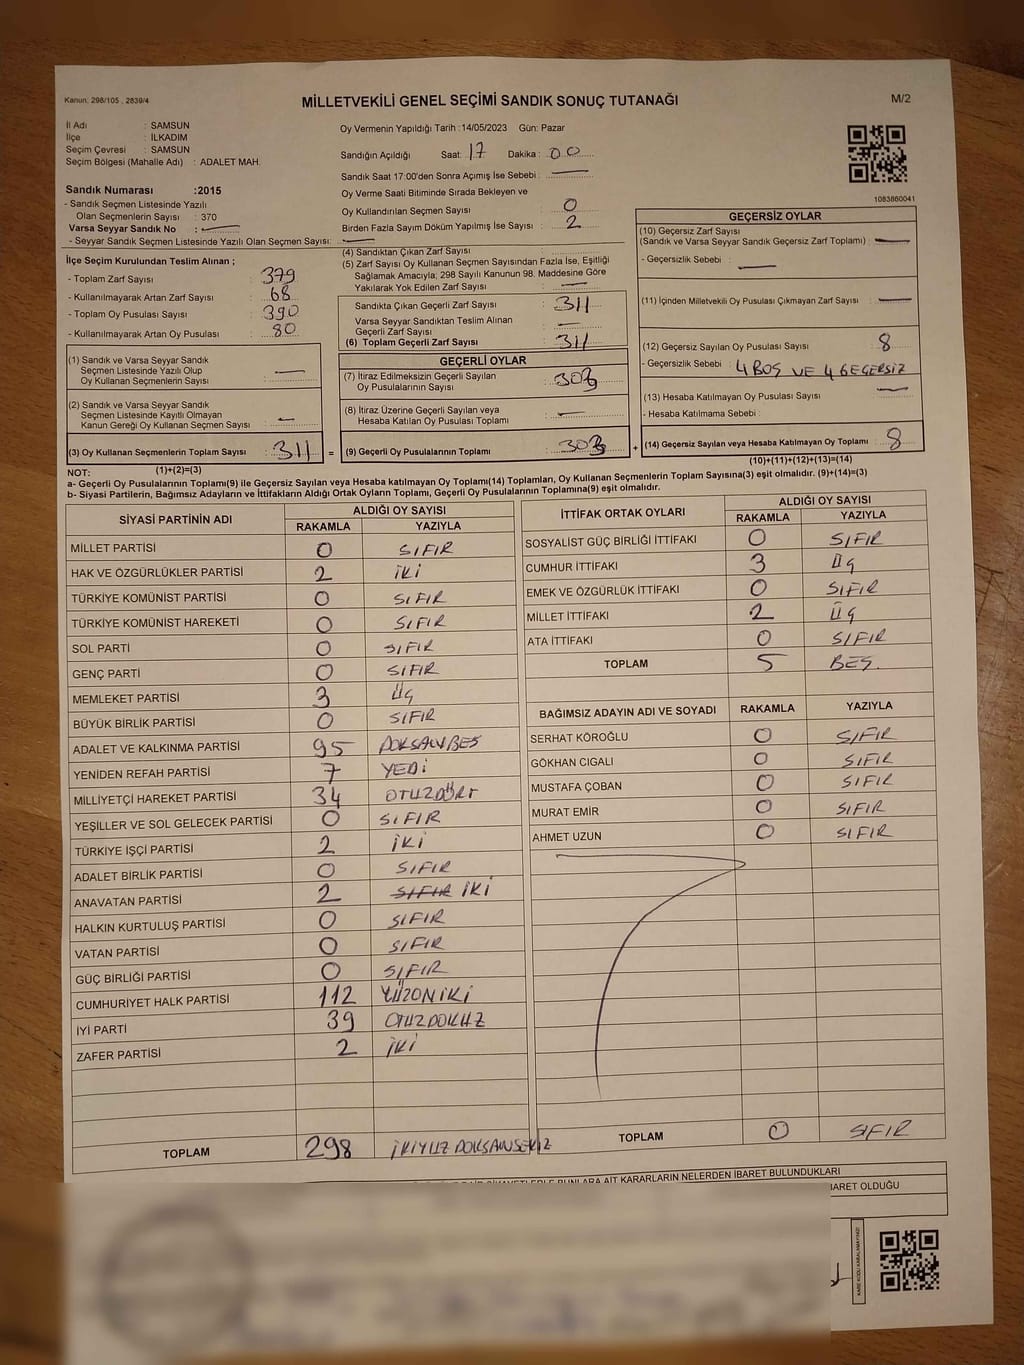 Kanun: 298/105 , 2839/4
MİLLETVEKİLİ GENEL SEÇİMİ SANDIK SONUÇ TUTANAĞI
M/2
İl Adı : SAMSUN
İlçe : İLKADIM
Seçim Çevresi : SAMSUN
Seçim Bölgesi (Mahalle Adı) : ADALET MAH.
Oy Vermenin Yapıldığı Tarih :14/05/2023 Gün: Pazar
Sandığın Açıldığı Saat: 17 Dakika : 00
Sandık Saat 17:00'den Sonra Açımış İse Sebebi :
Oy Verme Saati Bitiminde Sırada Bekleyen ve
Oy Kullandırılan Seçmen Sayısı : 0
Birden Fazla Sayım Döküm Yapılmış İse Sayısı : 2
1083860041
Sandık Numarası :2015
- Sandık Seçmen Listesinde Yazılı
Olan Seçmenlerin Sayısı : 370
Varsa Seyyar Sandık No :
- Seyyar Sandık Seçmen Listesinde Yazılı Olan Seçmen Sayısı:
İlçe Seçim Kurulundan Teslim Alınan ;
- Toplam Zarf Sayısı : 379
- Kullanılmayarak Artan Zarf Sayısı : 68
- Toplam Oy Pusulası Sayısı : 390
- Kullanılmayarak Artan Oy Pusulası : 80
(1) Sandık ve Varsa Seyyar Sandık
Seçmen Listesinde Yazılı Olup
Oy Kullanan Seçmenlerin Sayısı :
(2) Sandık ve Varsa Seyyar Sandık
Seçmen Listesinde Kayıtlı Olmayan
Kanun Gereği Oy Kullanan Seçmen Sayısı :
(3) Oy Kullanan Seçmenlerin Toplam Sayısı : 311 =
(1)+(2)=(3)
(4) Sandıktan Çıkan Zarf Sayısı
(5) Zarf Sayısı Oy Kullanan Seçmen Sayısından Fazla İse, Eşitliği
Sağlamak Amacıyla; 298 Sayılı Kanunun 98. Maddesine Göre
Yakılarak Yok Edilen Zarf Sayısı :
Sandıkta Çıkan Geçerli Zarf Sayısı : 311
Varsa Seyyar Sandıktan Teslim Alınan
Geçerli Zarf Sayısı :
(6) Toplam Geçerli Zarf Sayısı : 311
GEÇERLİ OYLAR
(7) İtiraz Edilmeksizin Geçerli Sayılan
Oy Pusulalarının Sayısı : 303
(8) İtiraz Üzerine Geçerli Sayılan veya
Hesaba Katılan Oy Pusulası Toplamı :
(9) Geçerli Oy Pusulalarının Toplamı : 303 +
GEÇERSİZ OYLAR
(10) Geçersiz Zarf Sayısı
(Sandık ve Varsa Seyyar Sandık Geçersiz Zarf Toplamı) :
- Geçersizlik Sebebi :
(11) İçinden Milletvekili Oy Pusulası Çıkmayan Zarf Sayısı :
(12) Geçersiz Sayılan Oy Pusulası Sayısı : 8
- Geçersizlik Sebebi : 4 BOŞ VE 4 GEÇERSİZ
(13) Hesaba Katılmayan Oy Pusulası Sayısı :
- Hesaba Katılmama Sebebi :
(14) Geçersiz Sayılan veya Hesaba Katılmayan Oy Toplamı : 8
(10)+(11)+(12)+(13)=(14)
NOT:
a- Geçerli Oy Pusulalarının Toplamı(9) ile Geçersiz Sayılan veya Hesaba katılmayan Oy Toplamı(14) Toplamları, Oy Kullanan Seçmenlerin Toplam Sayısına(3) eşit olmalıdır. (9)+(14)=(3)
b- Siyasi Partilerin, Bağımsız Adayların ve İttifakların Aldığı Ortak Oyların Toplamı, Geçerli Oy Pusulalarının Toplamına(9) eşit olmalıdır.
SİYASİ PARTİNİN ADI ALDIĞI OY SAYISI
RAKAMLA YAZIYLA
MİLLET PARTİSİ 0 SIFIR
HAK VE ÖZGÜRLÜKLER PARTİSİ 2 İKİ
TÜRKİYE KOMÜNİST PARTİSİ 0 SIFIR
TÜRKİYE KOMÜNİST HAREKETİ 0 SIFIR
SOL PARTİ 0 SIFIR
GENÇ PARTİ 0 SIFIR
MEMLEKET PARTİSİ 3 ÜÇ
BÜYÜK BİRLİK PARTİSİ 0 SIFIR
ADALET VE KALKINMA PARTİSİ 95 DOKSANBEŞ
YENİDEN REFAH PARTİSİ 7 YEDİ
MİLLİYETÇİ HAREKET PARTİSİ 34 OTUZDÖRT
YEŞİLLER VE SOL GELECEK PARTİSİ 0 SIFIR
TÜRKİYE İŞÇİ PARTİSİ 2 İKİ
ADALET BİRLİK PARTİSİ 0 SIFIR
ANAVATAN PARTİSİ 2 SIFIR İKİ
HALKIN KURTULUŞ PARTİSİ 0 SIFIR
VATAN PARTİSİ 0 SIFIR
GÜÇ BİRLİĞİ PARTİSİ 0 SIFIR
CUMHURİYET HALK PARTİSİ 112 YÜZONİKİ
İYİ PARTİ 39 OTUZDOKUZ
ZAFER PARTİSİ 2 İKİ
TOPLAM 298 İKİYUZ DOKSANSEKİZ
İTTİFAK ORTAK OYLARI ALDIĞI OY SAYISI
RAKAMLA YAZIYLA
SOSYALİST GÜÇ BİRLİĞİ İTTİFAKI 0 SIFIR
CUMHUR İTTİFAKI 3 ÜÇ
EMEK VE ÖZGÜRLÜK İTTİFAKI 0 SIFIR
MİLLET İTTİFAKI 2 ÜÇ
ATA İTTİFAKI 0 SIFIR
TOPLAM 5 BEŞ.
BAĞIMSIZ ADAYIN ADI VE SOYADI RAKAMLA YAZIYLA
SERHAT KÖROĞLU 0 SIFIR
GÖKHAN CIGALI 0 SIFIR
MUSTAFA ÇOBAN 0 SIFIR
MURAT EMİR 0 SIFIR
AHMET UZUN 0 SIFIR
TOPLAM 0 SIFIR
BUNLARA AİT KARARLARIN NELERDEN İBARET BULUNDUKLARI
İBARET OLDUĞU